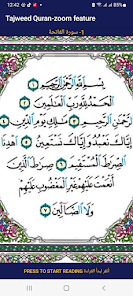 12:42
Tajweed Quran-zoom feature
1- سورة الفاتحة
بِسْمِ اللَّهِ الرَّحْمَٰنِ الرَّحِيمِ
الْحَمْدُ لِلَّهِ رَبِّ الْعَالَمِينَ
الرَّحْمَٰنِ الرَّحِيمِ مَالِكِ يَوْمِ الدِّينِ
إِيَّاكَ نَعْبُدُ وَإِيَّاكَ نَسْتَعِينُ اهْدِنَا
الصِّرَاطَ الْمُسْتَقِيمَ صِرَاطَ الَّذِينَ
أَنْعَمْتَ عَلَيْهِمْ غَيْرِ الْمَغْضُوبِ عَلَيْهِمْ
وَلَا الضَّالِّينَ
PRESS TO START READING انقر لبدأ القراءة